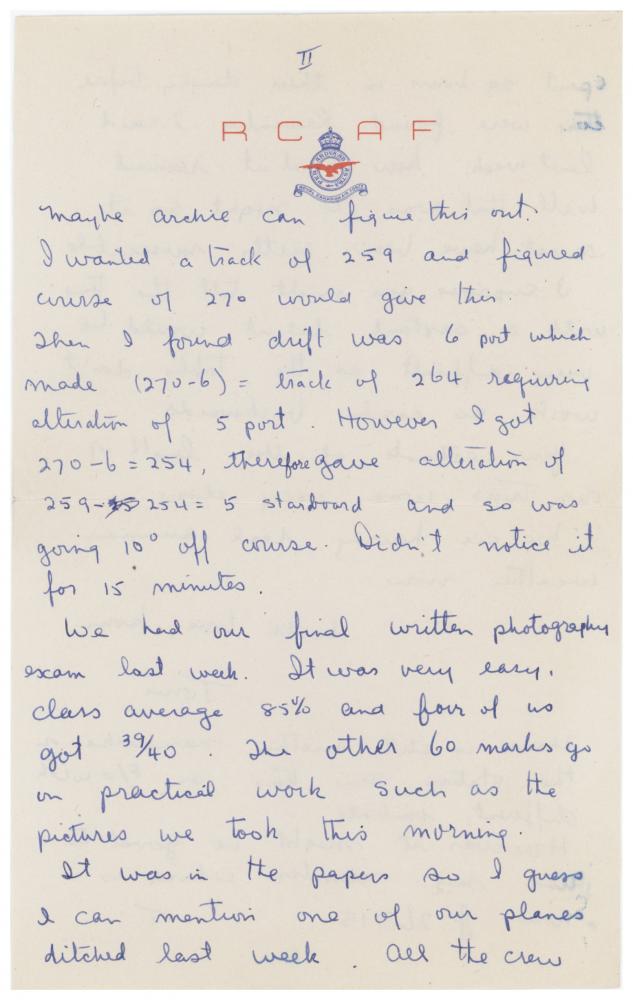 II
R C A F
PER ARDUA AD ASTRA
ROYAL CANADIAN AIR FORCE
Maybe archie can figure this out.
I wanted a track of 259 and figured
course of 270 would give this.
Then I found drift was 6 port which
made (270-6) = track of 264 requiring
alteration of 5 port. However I got
270-6 = 254, therefore gave alteration of
259- 254 = 5 starboard and so was
going 10° off course. Didn't notice it
for 15 minutes.
We had our final written photography
exam last week. It was very easy,
class average 85% and four of us
got 39/40. The other 60 marks go
on practical work such as the
pictures we took this morning.
It was in the papers so I guess
I can mention one of our planes
ditched last week. All the crew